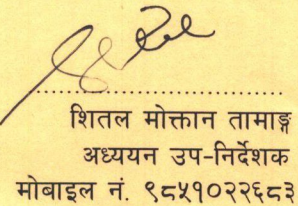 शितल मोक्तान तामाङ्ग
अध्ययन उप-निर्देशक
मोबाइल नं. ९८५१०२२६८३